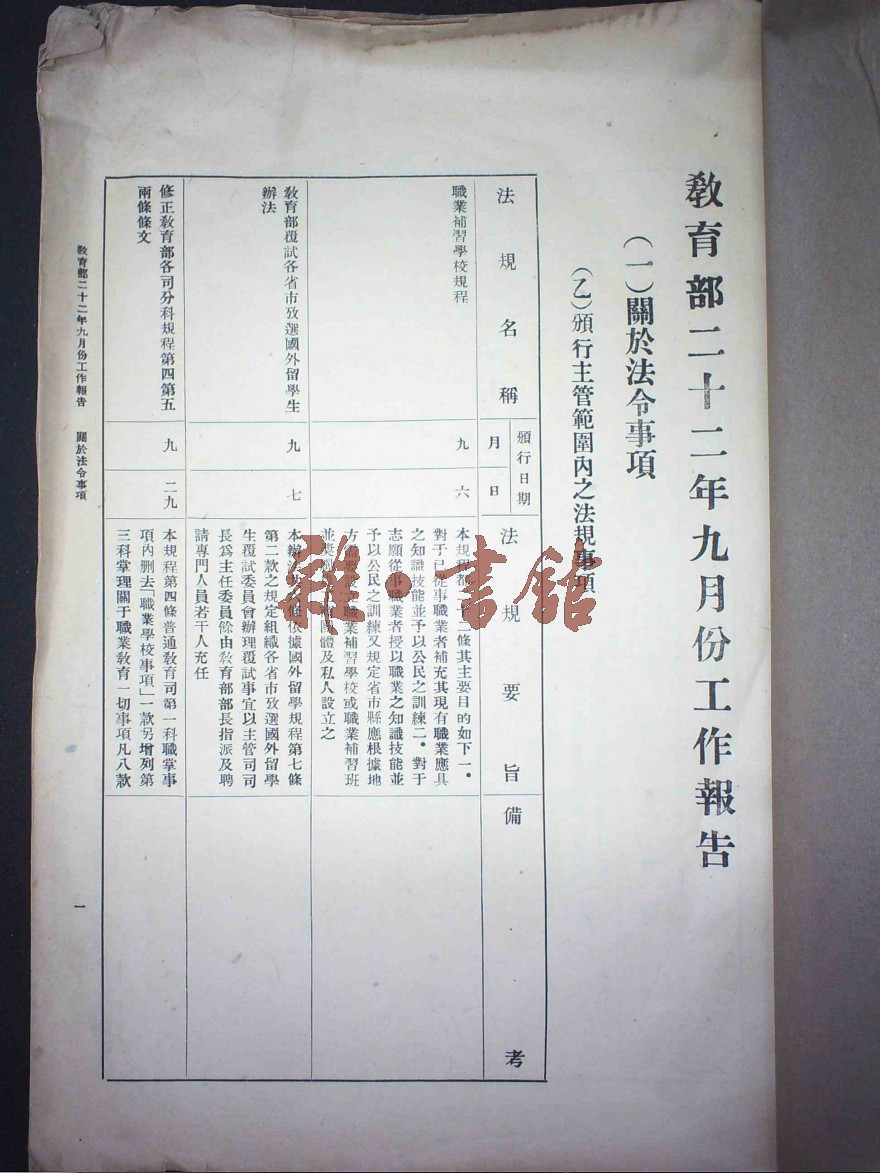 教育部二十二年九月份工作報告
(一)關於法令事項
(乙)頒行主管範圍內之法規事項
法規名稱
頒行日期
月
日
法規要旨
備考
職業補習學校規程
九
六
本規程都 十二條其主要目的如下一.
對于已從事職業者補充其現有職業應具
之知識技能並予以公民之訓練二.對于
志願從事職業者授以職業之知識技能並
予以公民之訓練又規定省市縣應根據地
方需要設立職業補習學校或職業補習班
並獎勵 團體及私人設立之
教育部覆試各省市攷選國外留學生
辦法
九
七
本辦法 條依據國外留學規程第七條
第二款之規定組織各省市攷選國外留學
生覆試委員會辦理覆試事宜以主管司司
長爲主任委員餘由教育部部長指派及聘
請專門人員若干人充任
修正教育部各司分科規程第四第五
兩條條文
九
二九
本規程第四條普通教育司第一科職掌事
項內刪去「職業學校事項」一款另增列第
三科掌理關于職業教育一切事項凡八款
教育部二十二年九月份工作報告 關於法令事項
一
雅·書館